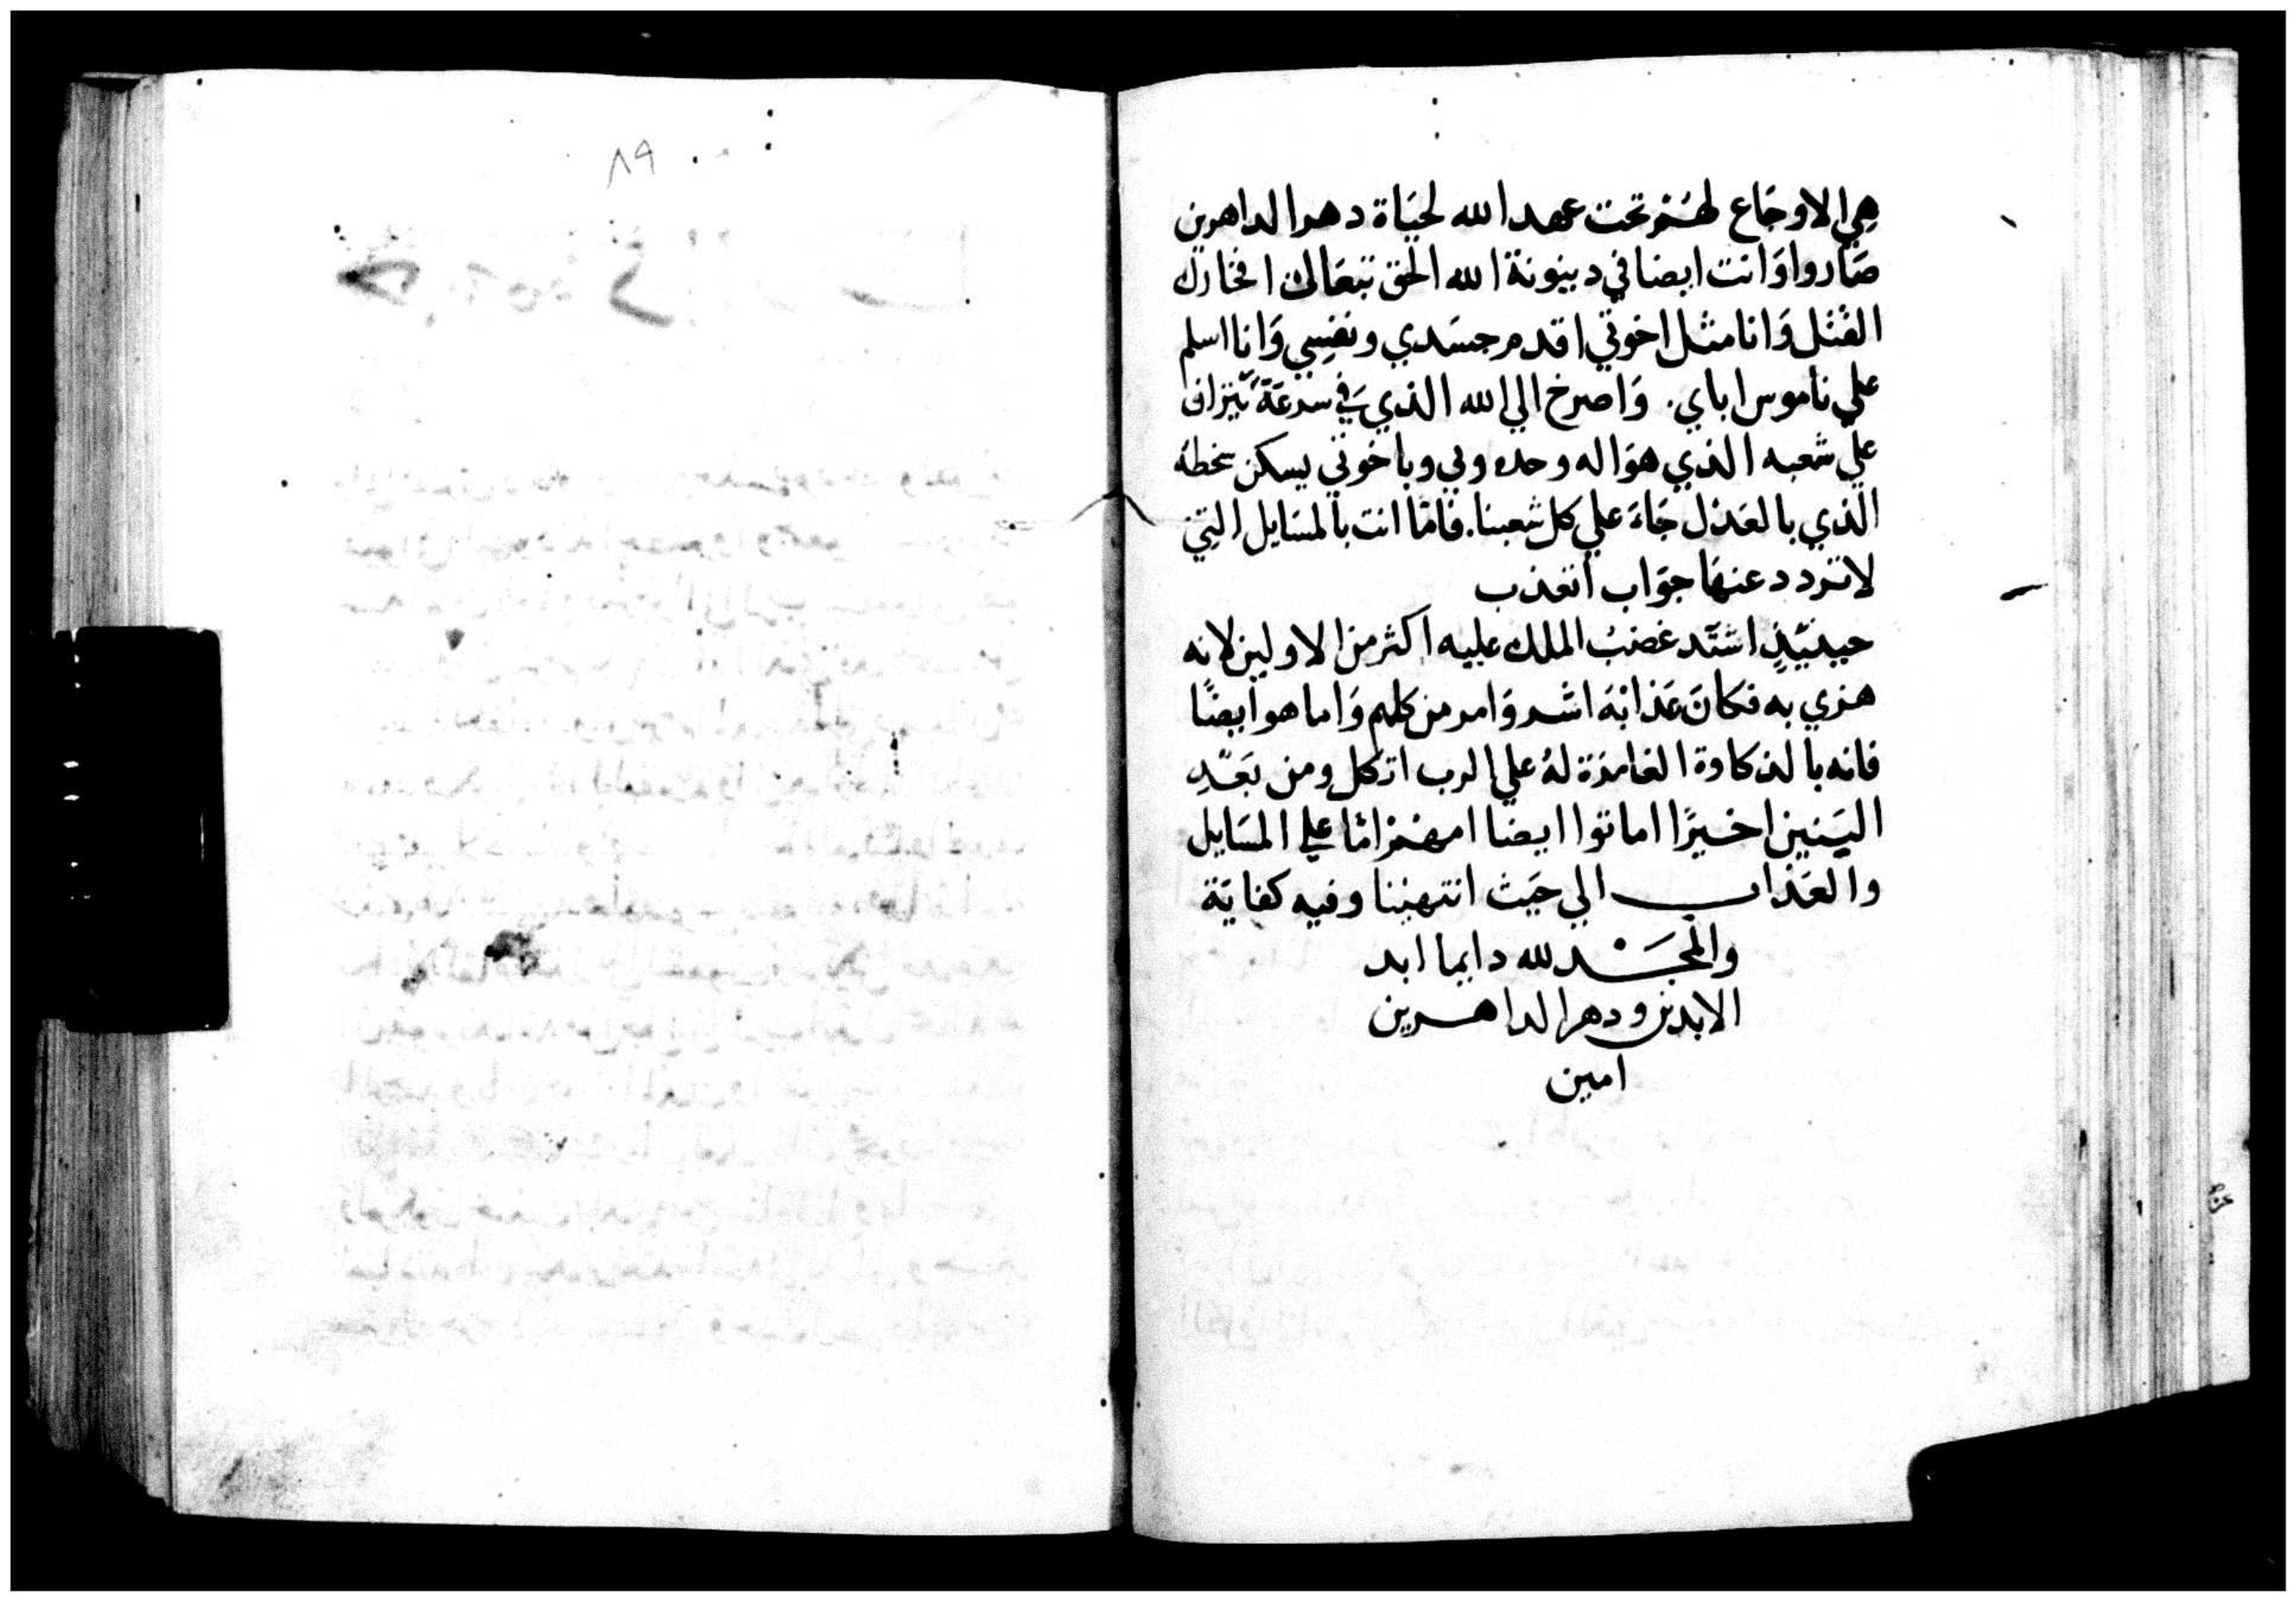 هي الاوجَاع لهُم تحت عهد الله لحيَاة دهر الداهرين
صَاروا وَانت ايضا في دينونة الله الحق تبعَالك افخارك
القتل وَانا مثل اخوتي اقدم جسَدي ونفسِي وَانا اسلم
علي ناموس اباي. وَاصرخ الي الله الذي في سرعَة يتراف
علي شعبه الذي هوَ اله وحده وبي وباخوتي يسكن سخطه
الذي بالعَدل جَاءَ علي كل شعبنا. فامّا انت بالمسَايل التي
لا تردد عنهَا جوَاب اتعذب
حينيّذٍ اشتّد غضبُ الملك عليه اكثر من الاولين لانه
هزي به فكانَ عَذابهُ اشر وَامر من كلهم وَاما هو ايضًا
فانه بالذكاوة الغامزة لهُ علي الرب اتكل ومن بَعّدِ
البَنين اخيرًا اماتوا ايضا امهم امّا علي المسَايل
والعَذاب الي حَيث انتهيننا وفيه كفايَة
والمجَد لله دايما ابد
الابدين ودهر الداهرين
امين
٨٩